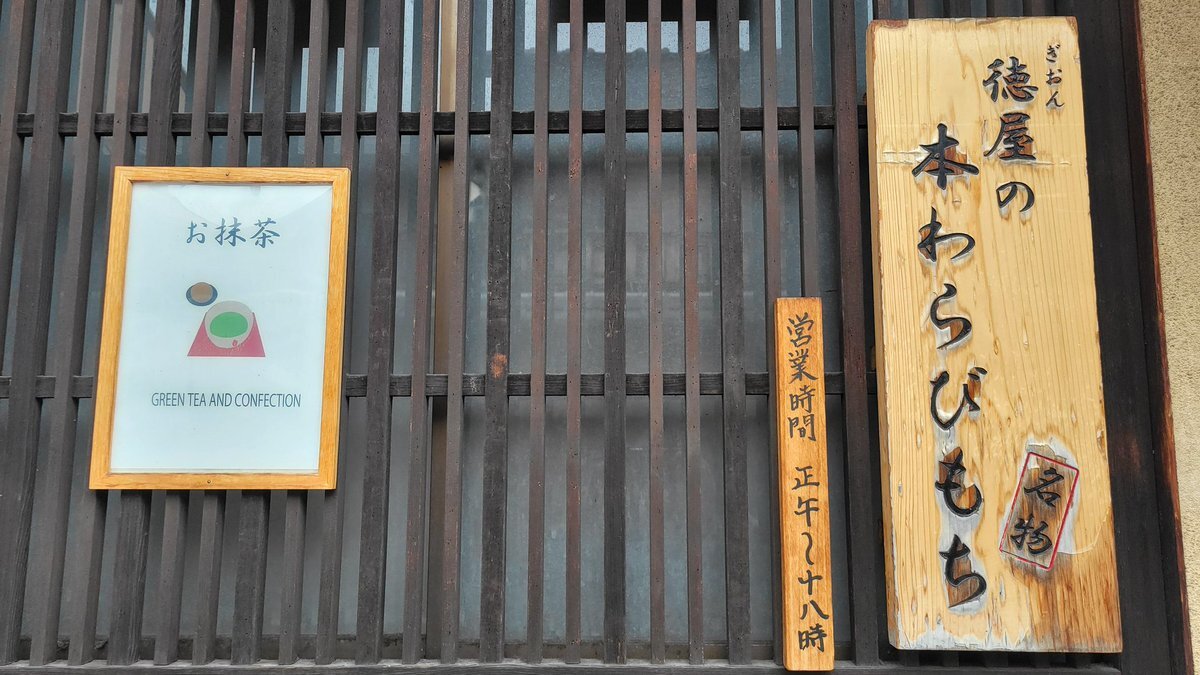 お抹茶
GREEN TEA AND CONFECTION
営業時間 正午〜十八時
ぎおん
徳屋の
本わらびもち
名物